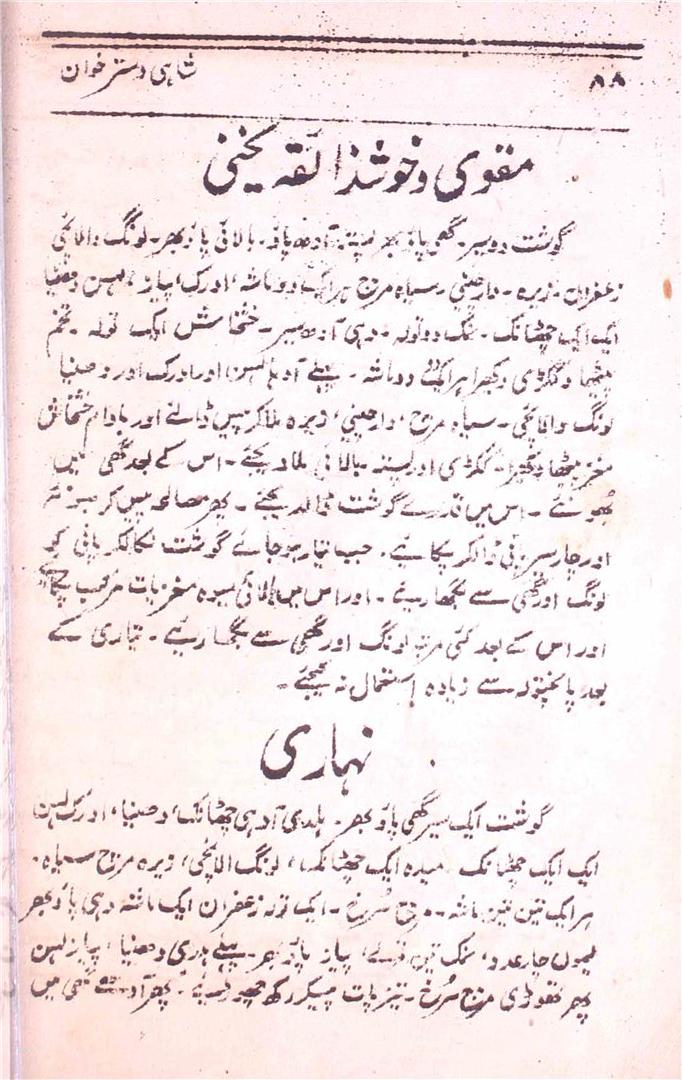 ۸۸
شاہی دسترخوان
مقوی و خوشذائقہ یخنی
گوشت دو سیر۔ گھی پاؤ بھر پستہ آدھ پاؤ۔ بالائی پاؤ بھر۔ لونگ والائچی
زعفران۔ زیرہ۔ دارچینی۔ سیاہ مرچ ہر ایک دو ماشہ، ادرک، پیاز، لہسن دھنیا
ایک ایک چھٹانک۔ نمک دو تولہ۔ دہی آدھ سیر۔ خشخاش ایک تولہ۔ تخم
پیٹھا و ککڑی و کھیرا ہر ایک دو ماشہ۔ پہلے آدھا لہسن اور ادرک اور دھنیا
لونگ والائچی۔ سیاہ مرچ، دارچینی، زیرہ ملا کر پیس ڈالئے اور بادام خشخاش
مغز پیٹھا و کھیرا۔ ککڑی اور پستہ۔ بالائی ملا دیجئے۔ اس کے بعد گھی میں
بھونئے۔ اس میں قدرے گوشت ڈالدیجئے۔ پھر مصالحہ پیس کر
اور چار سیر پانی ڈالکر پکائیے۔ جب تیار ہو جائے گوشت نکالکر پانی کو
لونگ اور گھی سے بگھاریئے۔ اور اس میں بالائی میوہ مغزیات مرکب کیجئے
اور اس کے بعد کئی مرتبہ لونگ اور گھی سے بگھاریئے۔ تیاری کے
بعد پانچتولہ سے زیادہ استعمال نہ کیجئے۔
نہاری
گوشت ایک سیر گھی پاؤ بھر۔ ہلدی آدہی چھٹانک، دھنیا، ادرک لہسن
ایک ایک چھٹانک۔ میدہ ایک چھٹانک، لونگ الائچی، زیرہ مرچ سیاہ۔
ہر ایک تین تین ماشہ۔ مرچ سُرخ۔ ایک تولہ زعفران ایک ماشہ دہی پاؤ بھر
لیموں چار عدد، نمک تین تولے، پیاز پاؤ بھر۔ پہلے ہلدی دھنیا، پیاز لہسن
پھر تھوڑی مرچ سُرخ۔ تیز پات پیسکر رکھ چھوڑیئے۔ پھر آدھے گھی میں